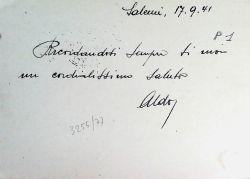 Salemi, 17.9.41
P 1
Ricordandoti sempre ti invio
un cordialissimo saluto
Aldo
3255/77